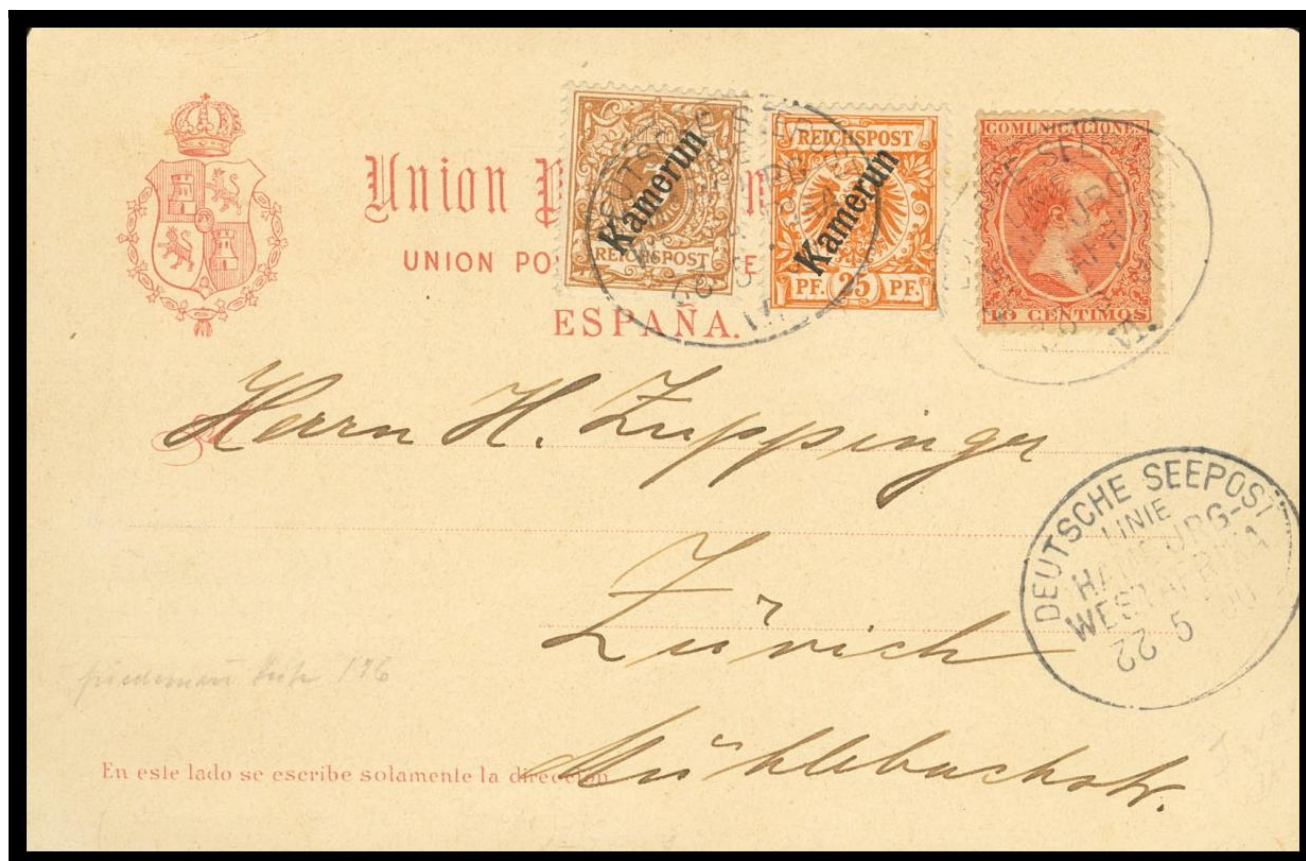 Union P
UNION PO E
ESPAÑA.
REICHSPOST
Kamerun
REICHSPOST
Kamerun
PF. 25 PF.
COMUNICACIONES
10 CENTIMOS
Herrn H. Zuppinger
Zürich
Mühlebachstr.
DEUTSCHE SEEPOST
LINIE
HAMBURG-
WESTAFRIKA
22 5 00
176
En este lado se escribe solamente la dirección